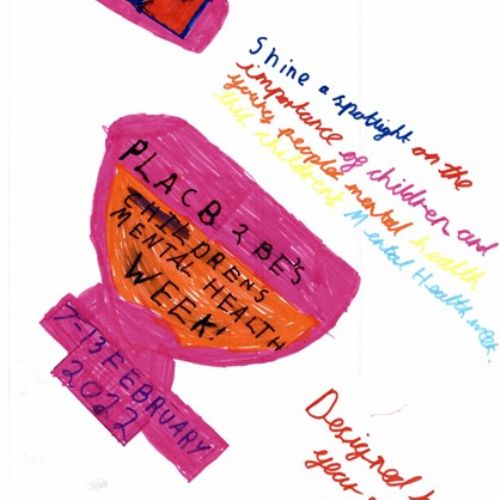 Shine a spotlight on the
importance of children and
young people mental health
this children Mental Health week.
PLACB 2 BE'S
CHILDREN'S
MENTAL HEALTH
WEEK!
7-13 FEBRUARY
2022
Designed
year